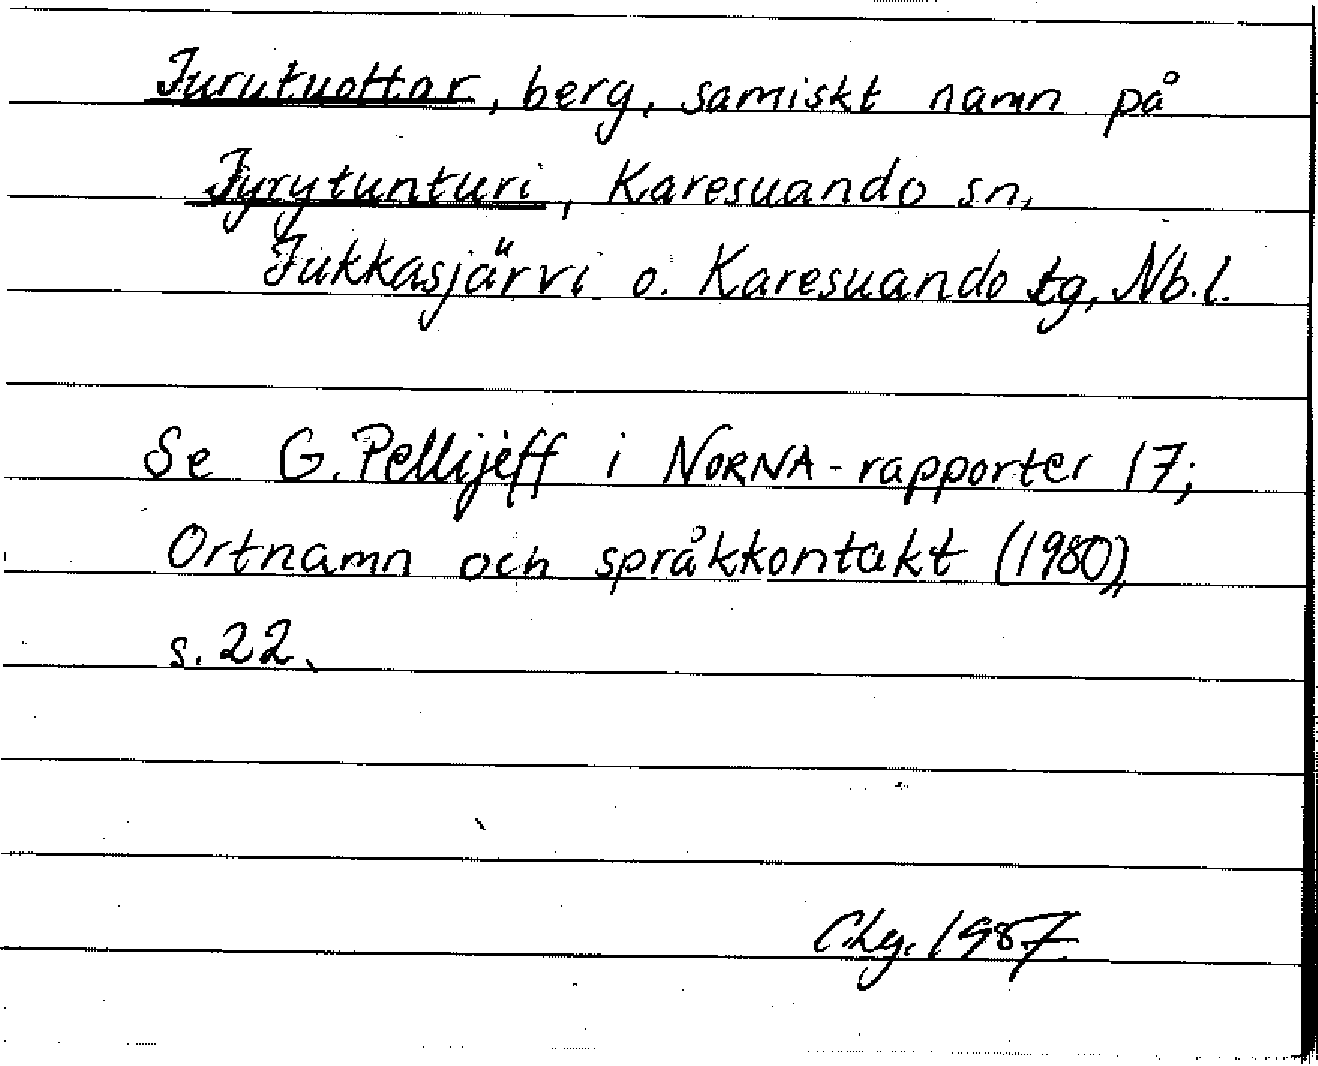 Jurutuottar, berg, samiskt namn på
Jyrytunturi, Karesuando sn,
Jukkasjärvi o. Karesuando tg, Nb.l.
Se G. Pellijeff i NORNA-rapporter 17;
Ortnamn och språkkontakt (1980),
s. 22.
CLg. 1987